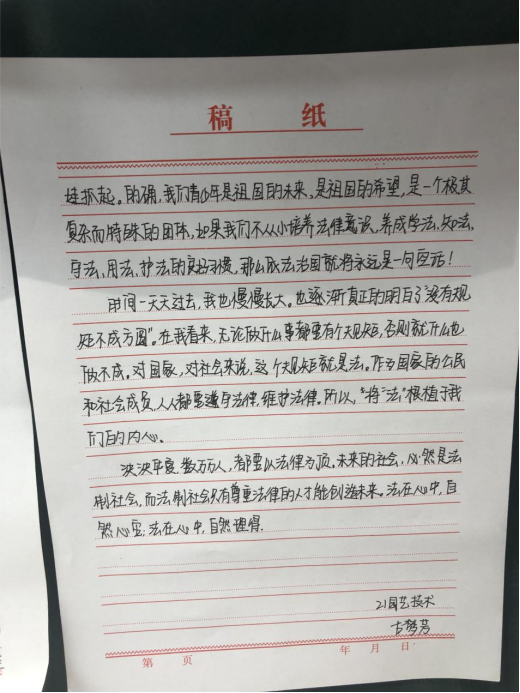 稿 纸
娃抓起。的确，我们青少年是祖国的未来，是祖国的希望，是一个极其
复杂而特殊的团体，如果我们不从小培养法律意识，养成学法、知法、
守法、用法、护法的良好习惯，那么依法治国就将永远是一句空话！
时间一天天过去，我也慢慢长大。也逐渐真正的明白了"没有规
矩不成方圆"。在我看来，无论做什么事都要有个规矩，否则就什么也
做不成。对国家，对社会来说，这个规矩就是法。作为国家的公民
和社会成员，人人都要遵守法律，维护法律。所以，"将"法"根植于我
们的内心。
泱泱华夏，数万万人，都要以法律为顶。未来的社会，必然是法
制社会，而法制社会只有尊重法律的人才能创造未来。法在心中，自
然心安；法在心中，自然理得.
21园艺技术
古梦芳
第 页 年 月 日